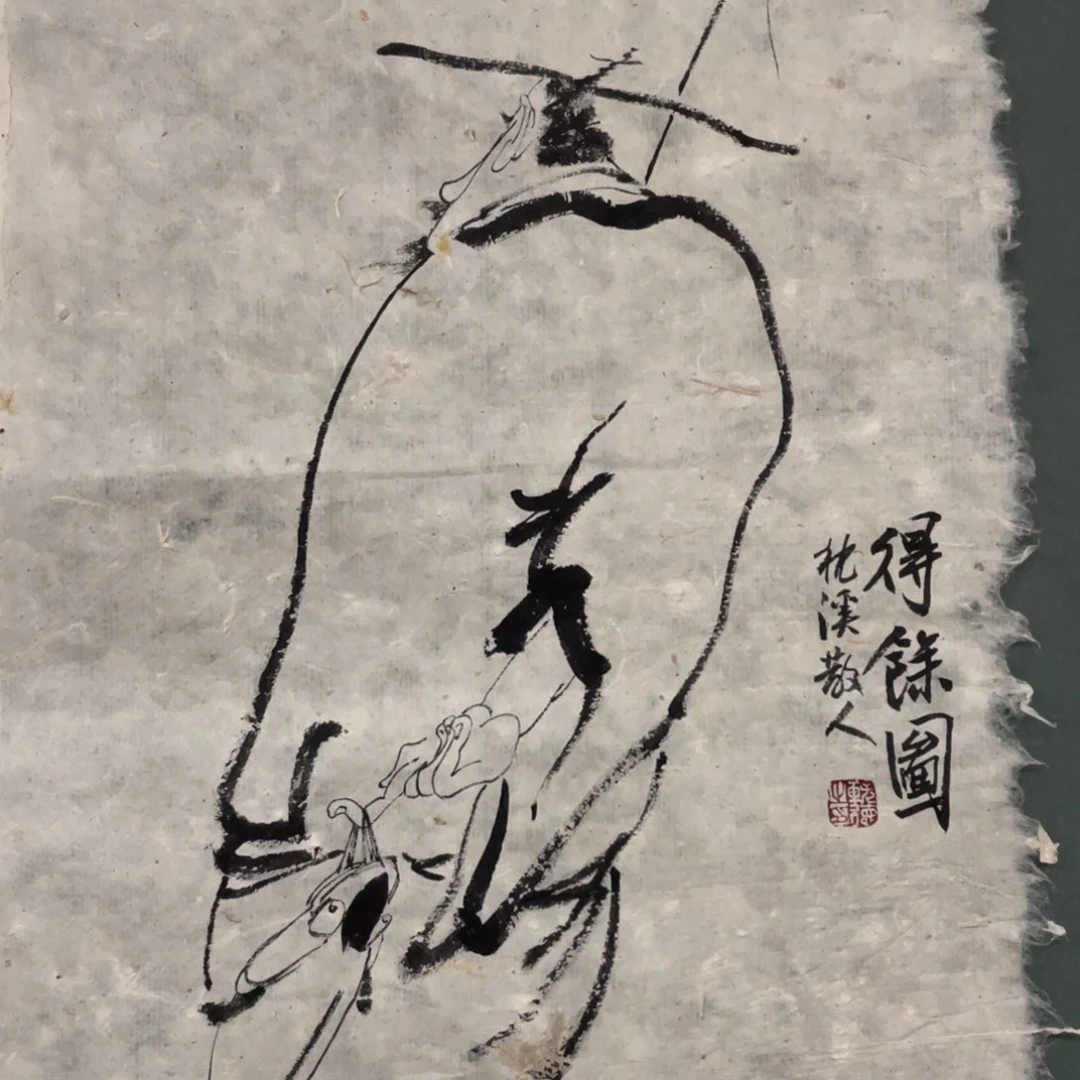 得餘圖
枕溪散人